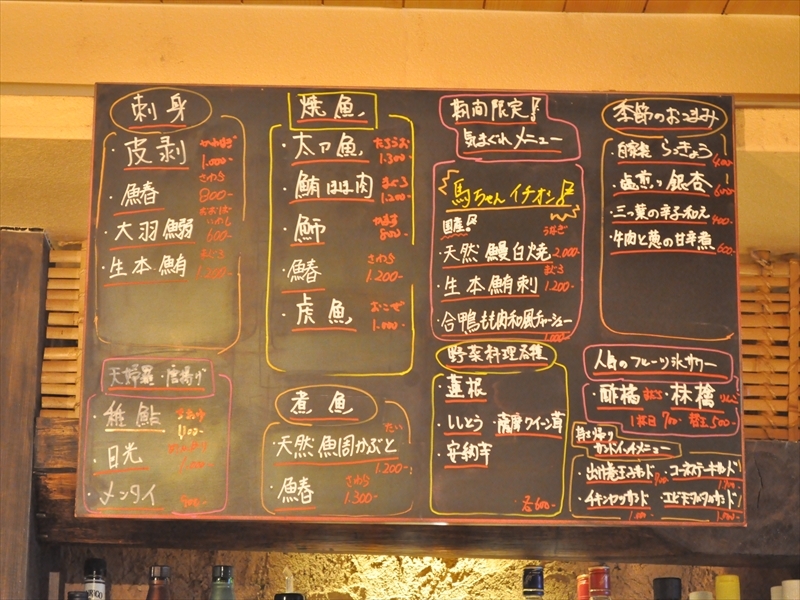 刺身
皮剥 かわはぎ 1.000-
・鰆 さわら 800-
・大羽鰯 おおばいわし 600-
・生本鮪 まぐろ 1.200-
焼魚
・太刀魚 たちうお 1.300-
・鮪ほほ肉 まぐろ 1.200-
・魳 かます 800-
・鰆 さわら 1.200-
・虎魚 おこぜ 1.000-
期間限定!
気まぐれメニュー
馬ちゃんイチオシ!
国産!
・天然鰻白焼 うなぎ 2.000-
・生本鮪刺 まぐろ 1.200-
・合鴨もも肉和風チャーシュー 1.000-
季節のおつまみ
・自家製らっきょう 400-
・塩煎り銀杏 600-
・三つ葉の辛子和え 400-
・牛肉と葱の甘辛煮 600-
天婦羅・唐揚げ
・稚鮎 1.100-
・目光
・メンタイ
煮魚
・天然魚周かぶと たい 1.200-
・鰆 さわら 1.300-
野菜料理各種
・蓮根
・ししとう ・薩摩ワイン茸
・安納芋
各600-
人気のフルーツ氷サワー
・酢橘 すだち ・林檎 りんご
1杯目700- 替玉500-
お持ち帰り
サンドイッチメニュー
・チキンカツサンド